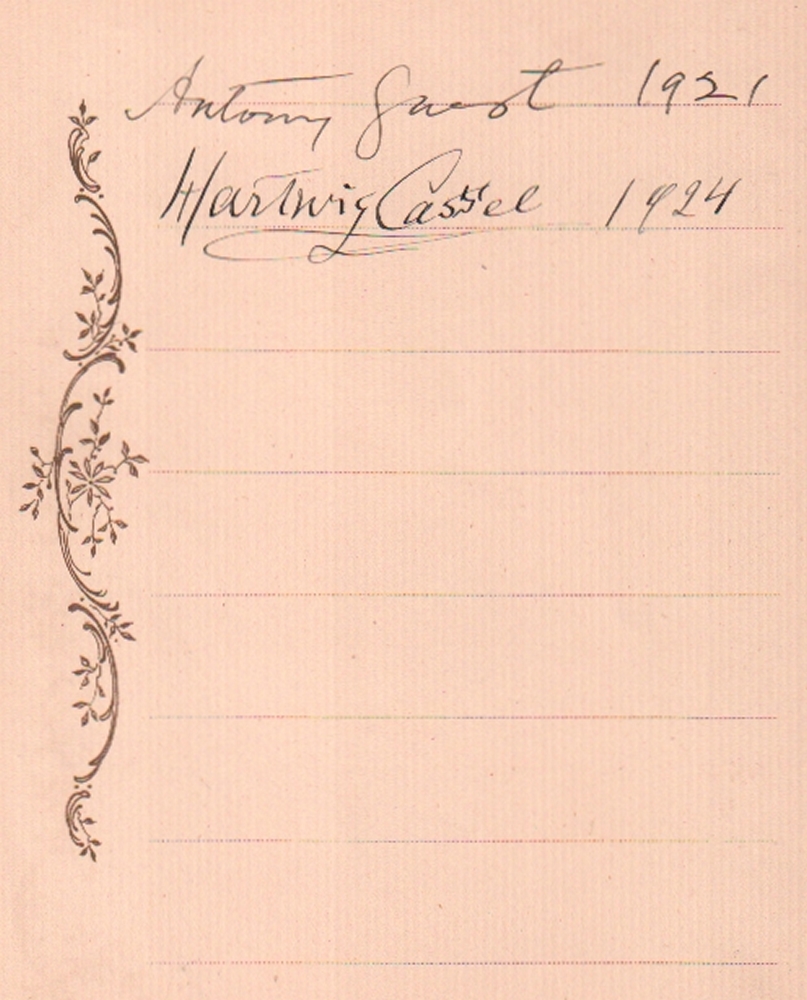 Antony Guest 1921
Hartwig Cassel 1924